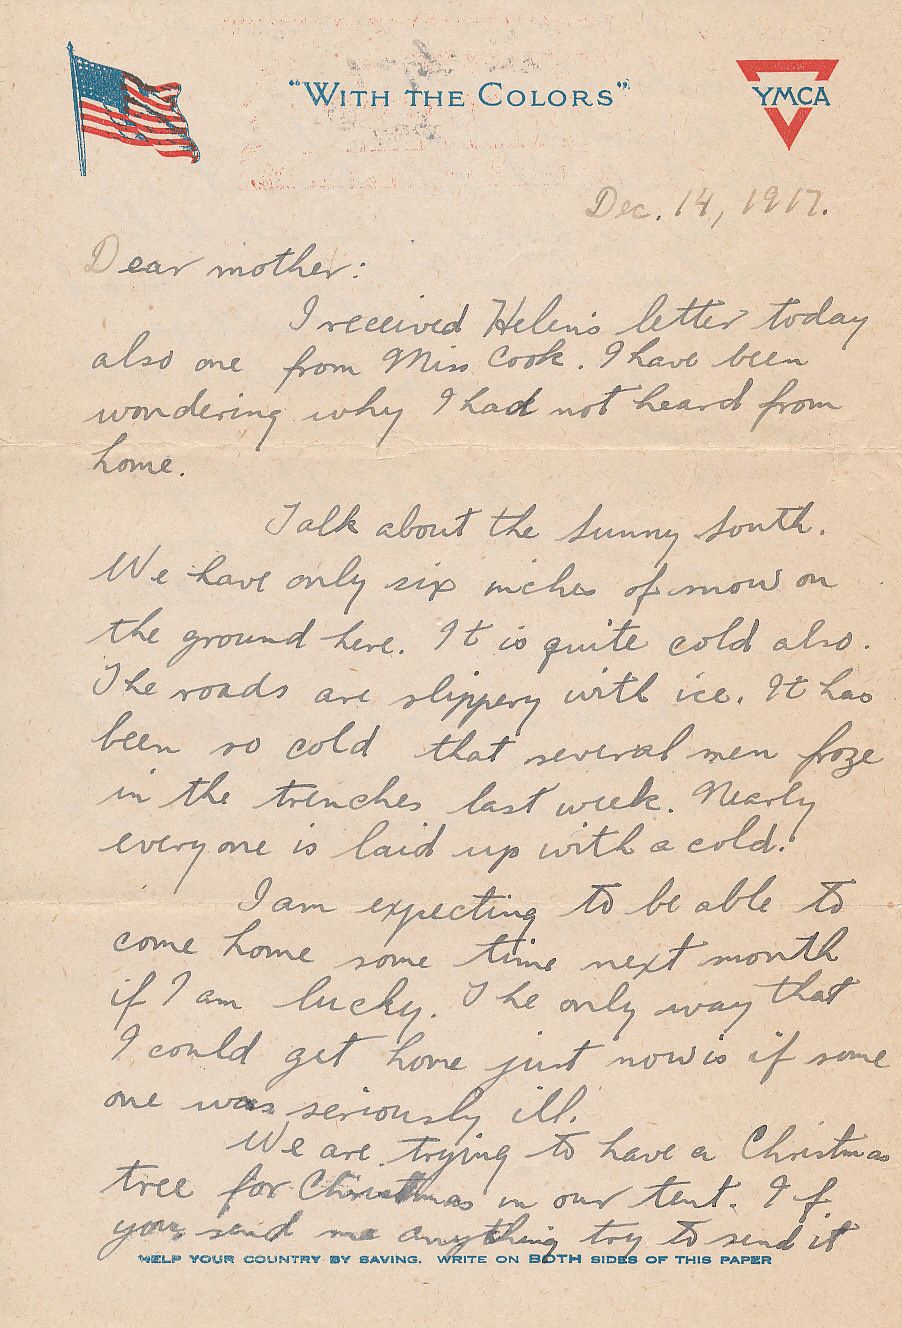 "WITH THE COLORS"
YMCA
Dec. 14, 1917.
Dear mother:
I received Helen's letter today
also one from Miss Cook. I have been
wondering why I had not heard from
home.
Talk about the Sunny South.
We have only six inches of snow on
the ground here. It is quite cold also.
The roads are slippery with ice. It has
been so cold that several men froze
in the trenches last week. Nearly
everyone is laid up with a cold.
I am expecting to be able to
come home some time next month
if I am lucky. The only way that
I could get home just now is if some
one was seriously ill.
We are trying to have a Christmas
tree for Christmas in our tent. If
you send me anything try to send it
HELP YOUR COUNTRY BY SAVING. WRITE ON BOTH SIDES OF THIS PAPER